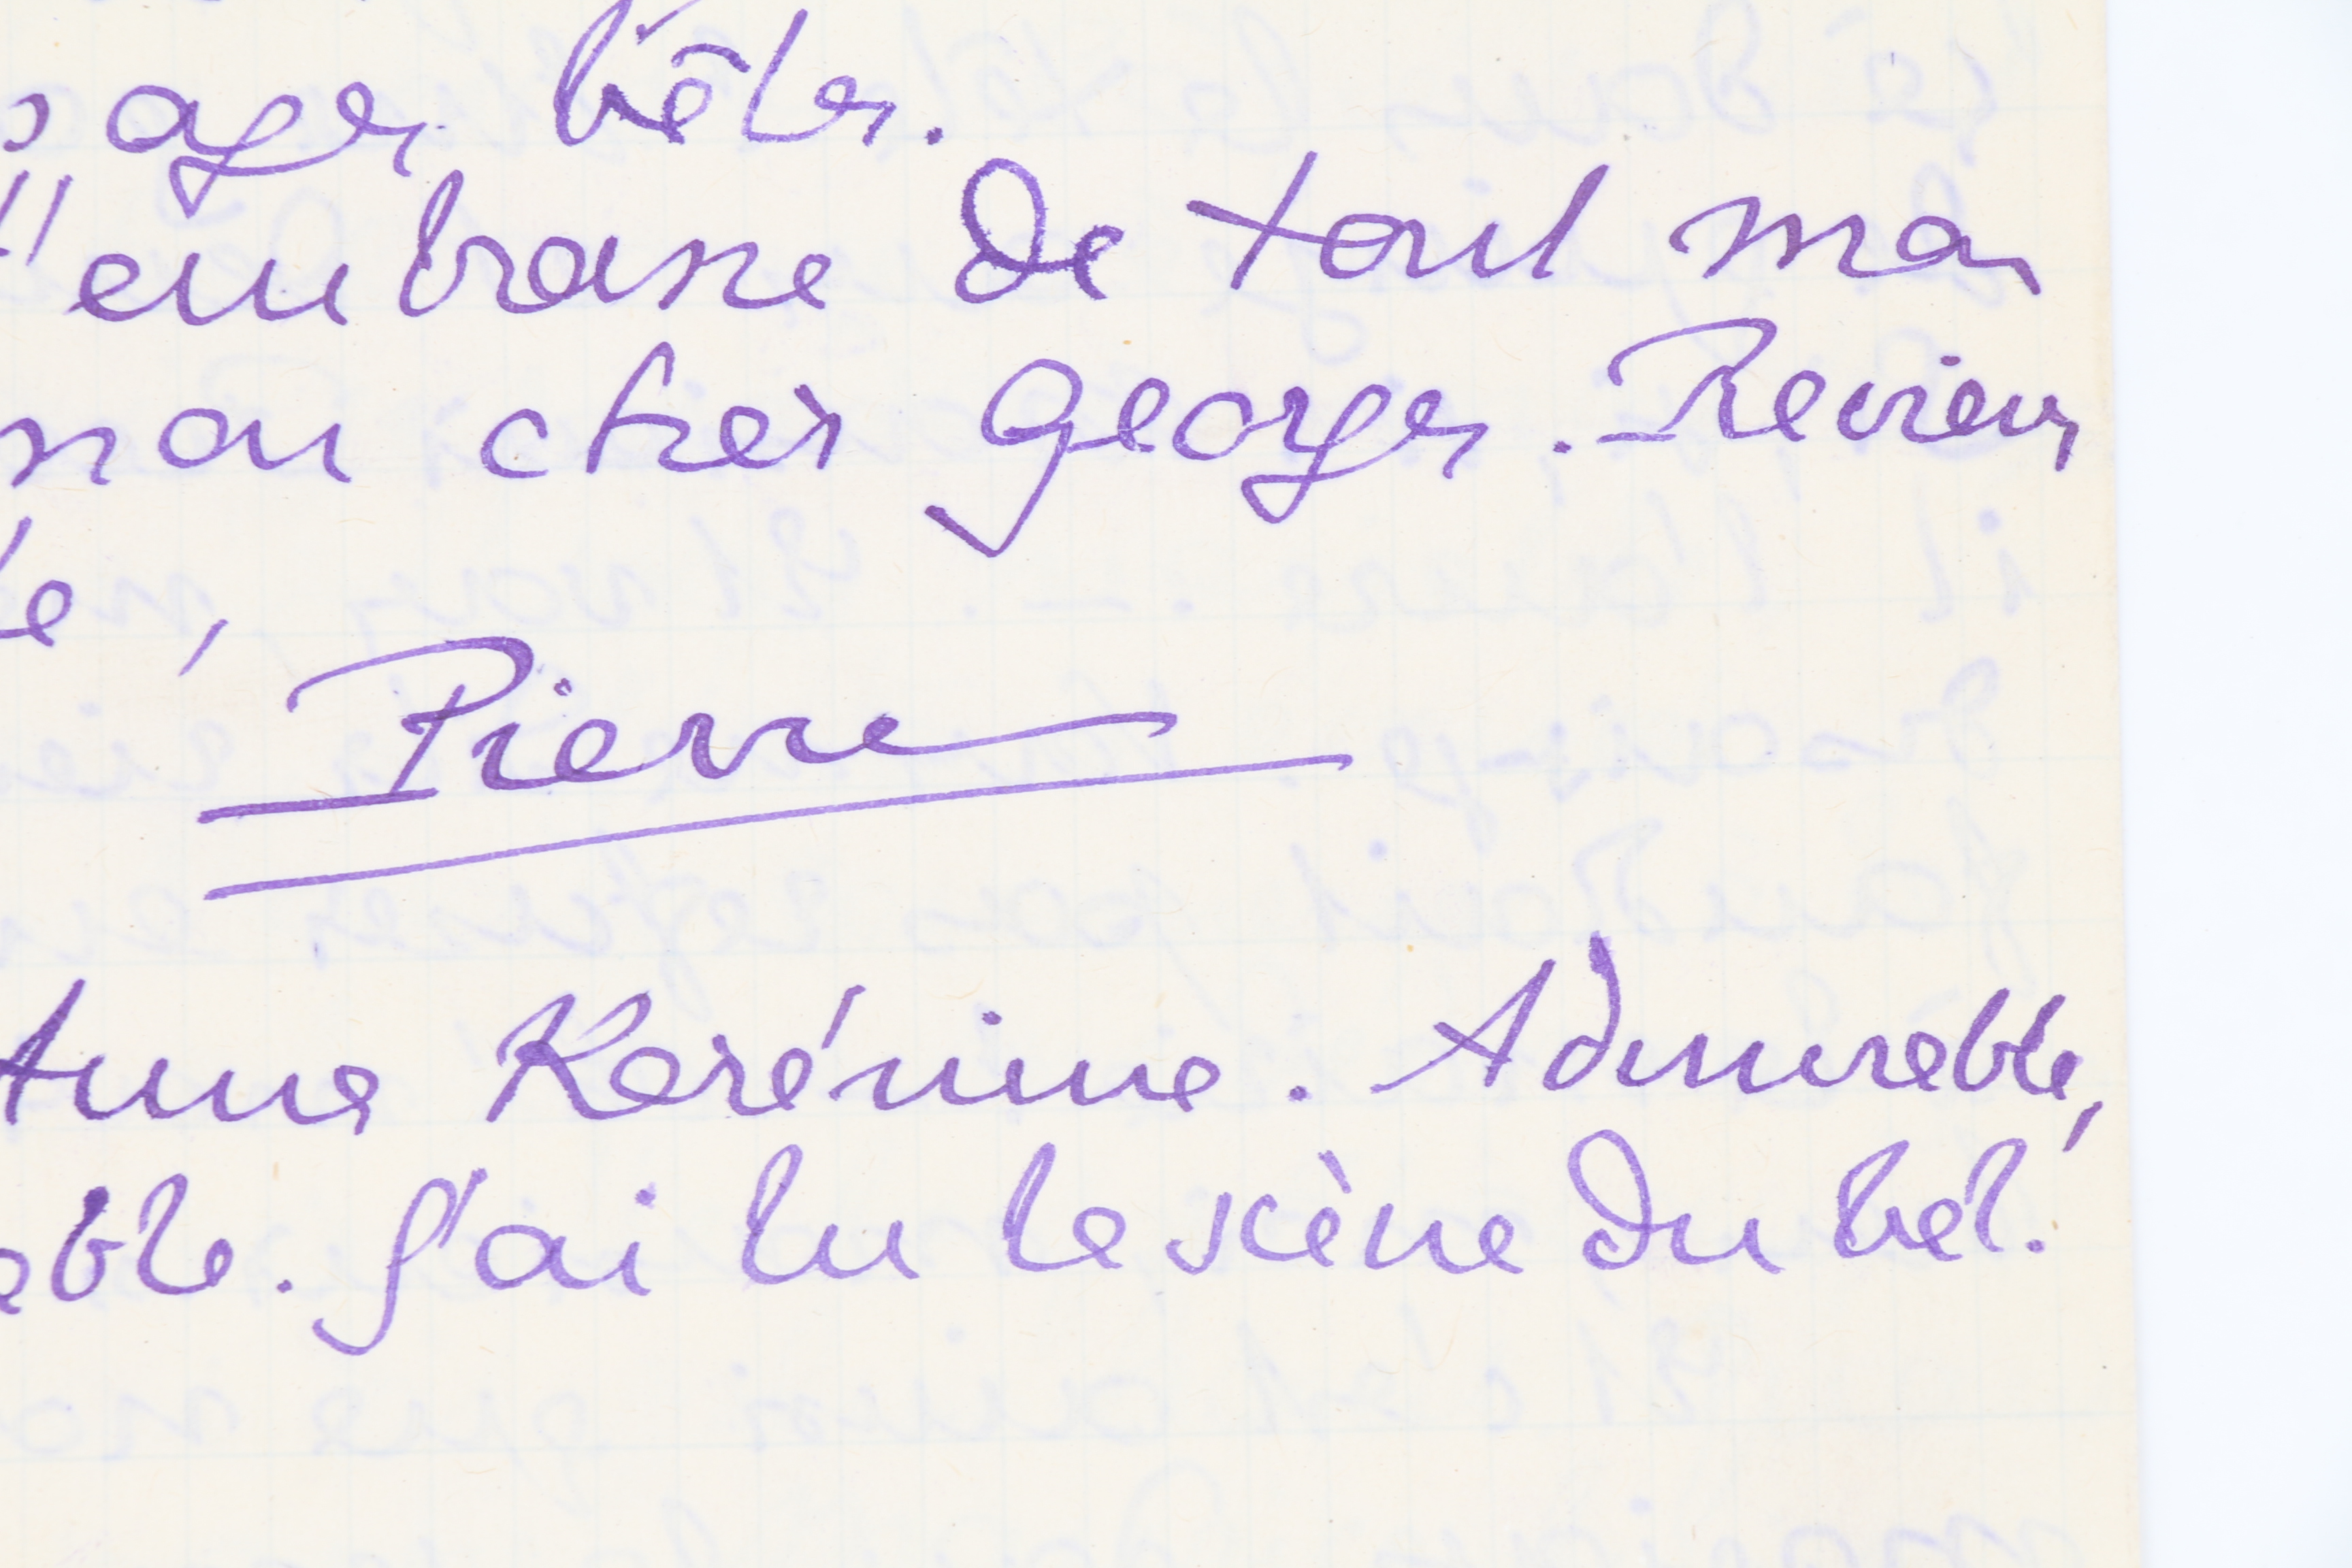 sages bêtes.
t'embrasse de tout mon
mon cher Georges. Reviens
Pierre
Anna Karénine. Admirable,
able. J'ai lu la scène du bal.